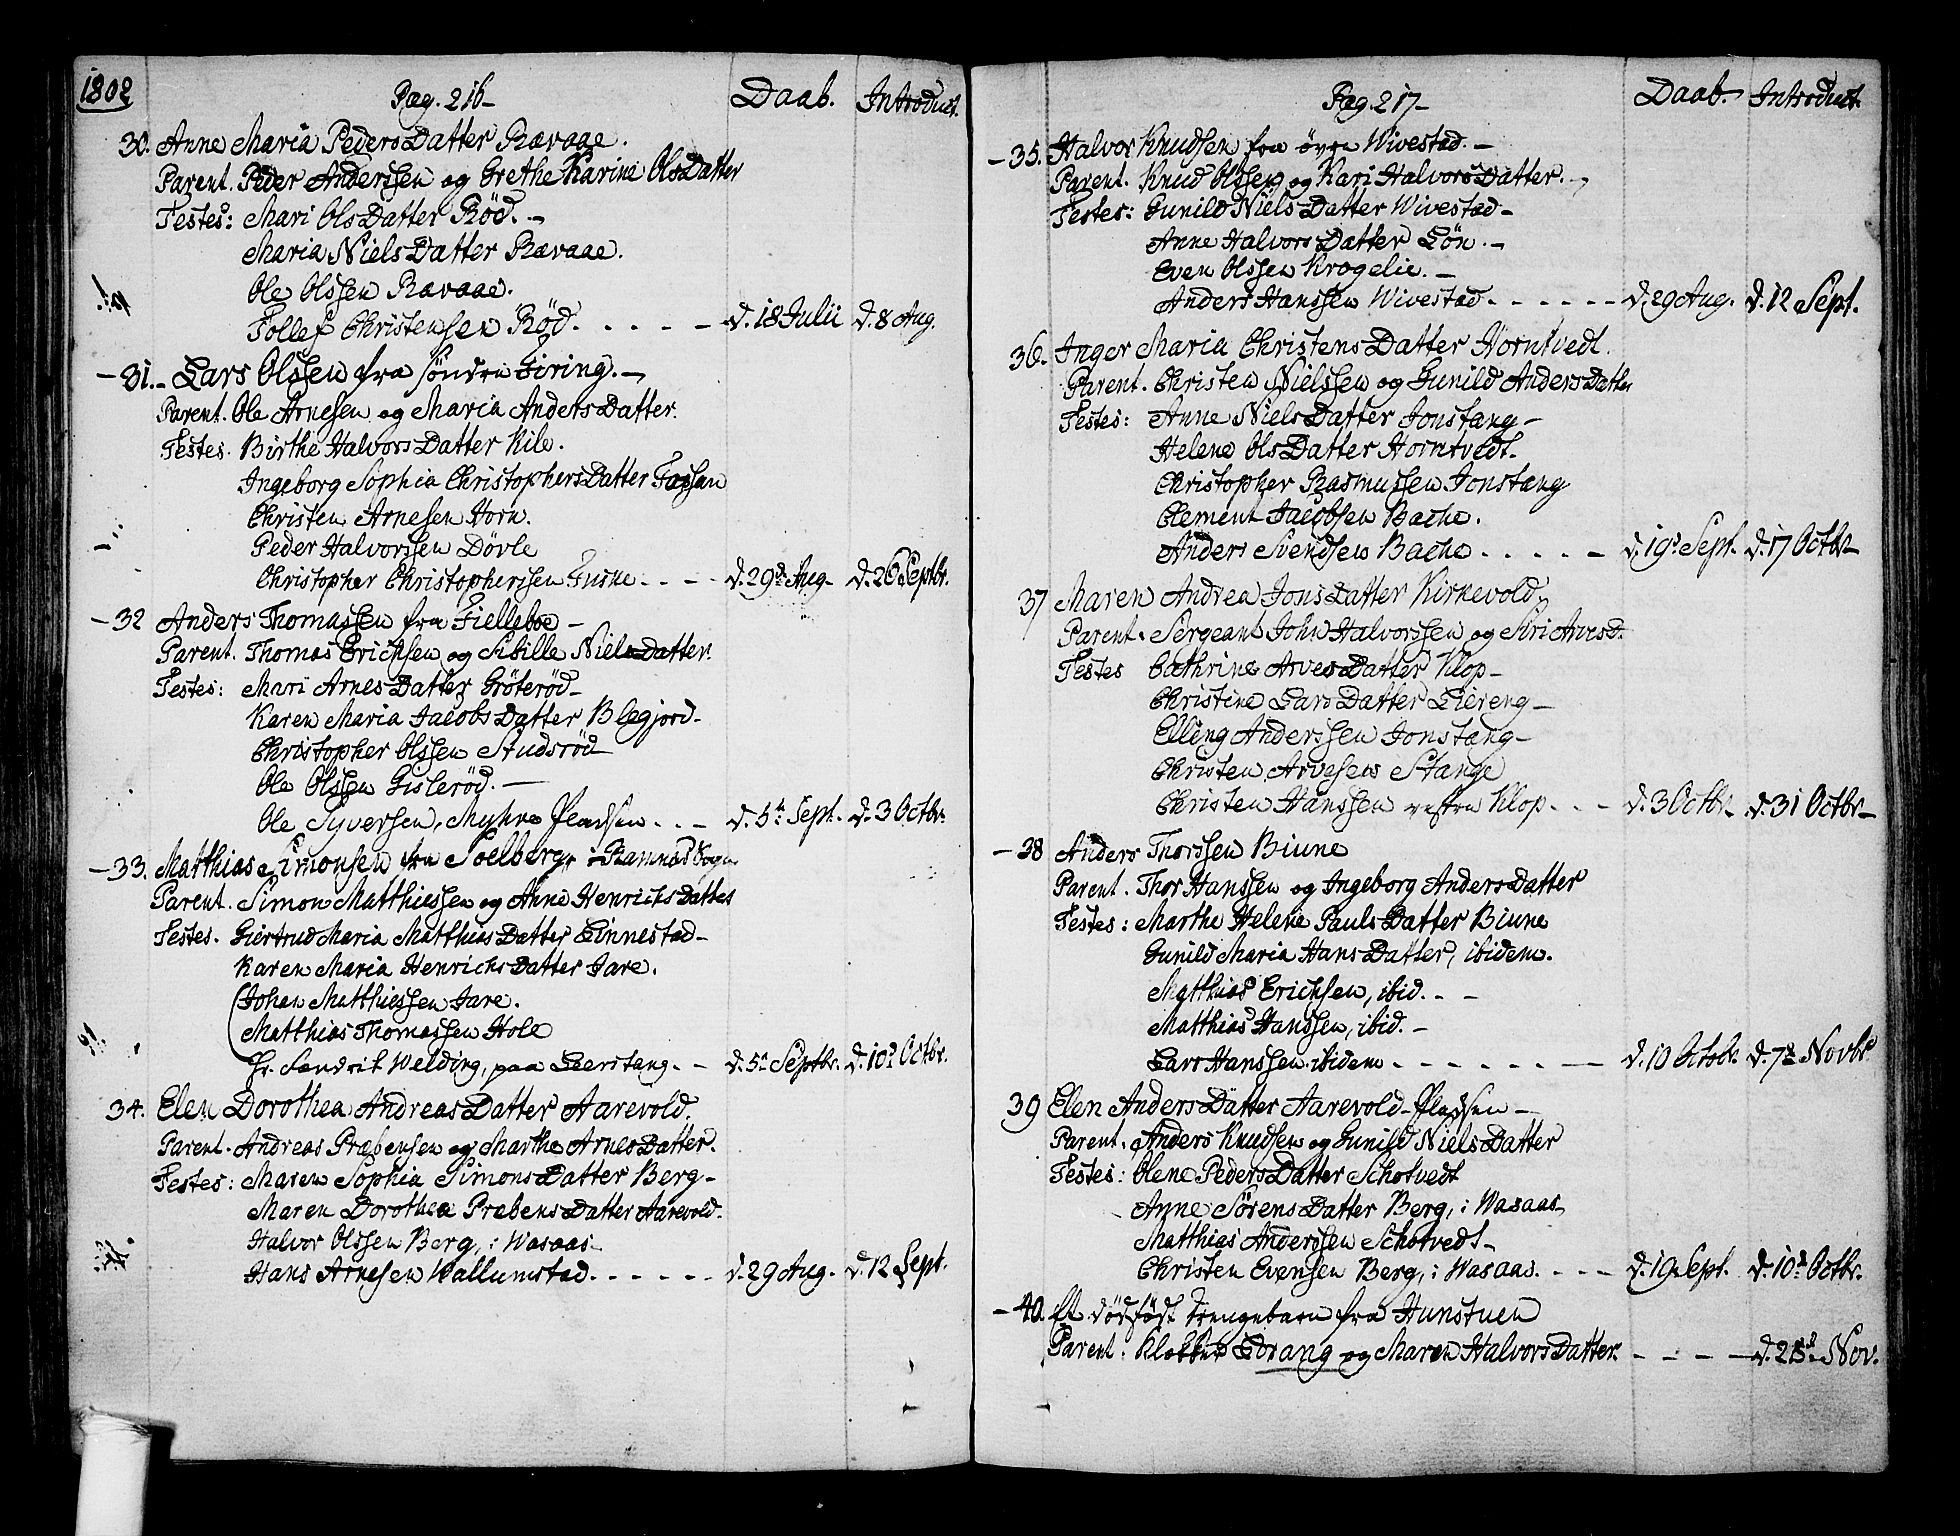 1802
Pag. 216-
Daab.
Introduct.
30. Anne Maria PedersDatter Rævaae.
Parent. Peder Anderssen og Grethe Karine OlsDatter
Testes: Mari OlsDatter Röd. -
Maria NielsDatter Rævaae.
Ole Olssen Rævaae.
Tollef Christensen Röd. - - - - d. 18 Julii d. 8 Aug.
- 31. - Lars Olssen fra söndre Giring. -
Parent. Ole Arnesen og Maria AndersDatter.
Testes. Birthe HalvorsDatter Kile.
Ingeborg Sophia ChristophersDatter Fossan
Christen Arnesen Horn.
Peder Halvorssen Dövle
Christopher Christopherssen Guske - - - d. 29d Aug. d. 26 Septbr.
- 32 Anders Thomassen fra Fielleboe -
Parent. Thomas Erichsen og Sibille NielsDatter.
Testes: Mari ArnesDatter Gröteröd -
Karen Maria JacobsDatter Blegjord -
Christopher Olssen Studsröd
Ole Olssen Gisleröd. -
Ole Syversen, Myhre Pladsen - - - d. 5te Sept. d. 3 Octbr.
- 33. Matthias Simonsen fra Soelberg, i Ramnæs Sogn
Parent. Simon Matthiessen og Anne HenrichsDatter
Testes. Giertrud Maria MatthiasDatter Linnestad -
Karen Maria HenrichsDatter Jare.
Johan Matthiessen Jare.
Matthias Thomassen Hole
Hr. Fendrik Welding, paa Leerstang - - d. 5te Septbr. d. 10d Octbr.
34. Elen Dorothea AndreasDatter Aarevold.
Parent. Andreas Præbensen og Marthe ArnesDatter.
Testes: Maren Sophia SimonsDatter Berg -
Maren Dorothea PræbensDatter Aarevold.
Halvor Olssen Berg, i Wasaas
Hans Arnesen Wallumstad. - - - - - d. 29 Aug. d. 12 Sept.
Pag. 217-
Daab.
Introduct.
- 35. Halvor Knudsen fra övre Wivestad. -
Parent. Knud Olssen og Kari HalvorsDatter. -
Testes: Gunild NielsDatter Wivestad -
Anne HalvorsDatter Lön. -
Even Olssen Krogelie. -
Anders Hanssen Wivestad - - - - - d. 29 Aug. d. 12 Sept.
36. Inger Maria ChristensDatter Horntvedt.
Parent. Christen Nielssen og Gunild AndersDatter
Testes: Anne NielsDatter Jonstang -
Helene OlsDatter Horntvedt.
Christopher Rasmussen Jonstang
Clement Jacobsen Bache.
Anders Svendsen Bache - - - - - d. 19d Sept. d. 17 Octbr.
37 Maren Andrea JonsDatter Kirkevold
Parent. Sergeant John Halvorssen og Siri Arvesd.
Testes Cathrine ArvesDatter Klop -
Christine LarsDatter Liereng -
Elling Anderssen Jonstang -
Christen Arvesen Stange
Christen Hanssen vestre Klop - - - d. 3 Octbr. d. 31 Octbr.
- 38 Anders Thorssen Biune
Parent. Thor Hanssen og Ingeborg AndersDatter
Testes: Marthe Helene PaulsDatter Biune
Gunild Maria HansDatter, ibidem.
Matthias Erichsen, ibid. - -
Matthias Hanssen, ibid. -
Lars Hanssen ibidem - - - - - - - d. 10 Octobr. d. 7de Novbr.
39 Elen AndersDatter Aarevold-Pladsen -
Parent. Anders Knudsen og Gunild NielsDatter
Testes: Olene PedersDatter Schotvedt
Anne SörensDatter Berg, i Wasaas
Matthias Anderssen Schotvedt -
Christen Evensen Berg, i Wasaas. - - - d. 19 Sept. d. 10d Octbr.
- 40. Et dödfödt drengebarn fra Hunstuen
Parent. Klokker Lorang og Maren HalvorsDatter. - - - - d. 21d Nov.